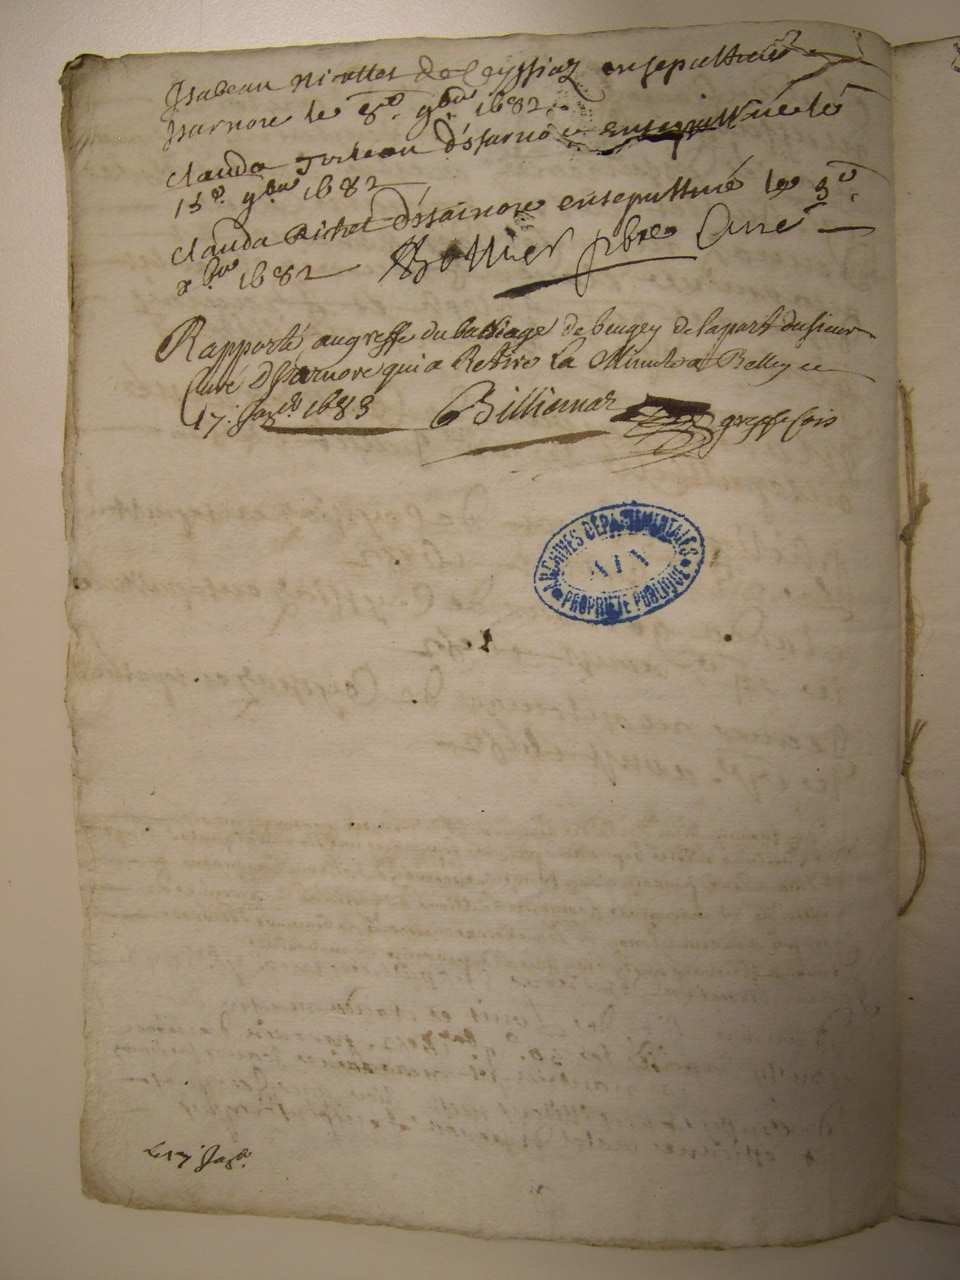 Isabeau nicollet de Ceyssiaz ensepulturée
Isarnore le 8e. 9bre 1682
Clauda d'Isarnore ensepulturée le
15e. 9bre 1682
Clauda Richet d'Isarnore ensepulturée le 3e
xbre 1682 pbre Curé
Rapporté au greffe du balliage de beugey de la part du sieur
Curé D'Isarnore qui a Retiré La Minute a Belley ce
17. Janr 1683 Billiemaz greffe Cois
ARCHIVES DÉPARTEMENTALES
AIN
PROPRIÉTÉ PUBLIQUE